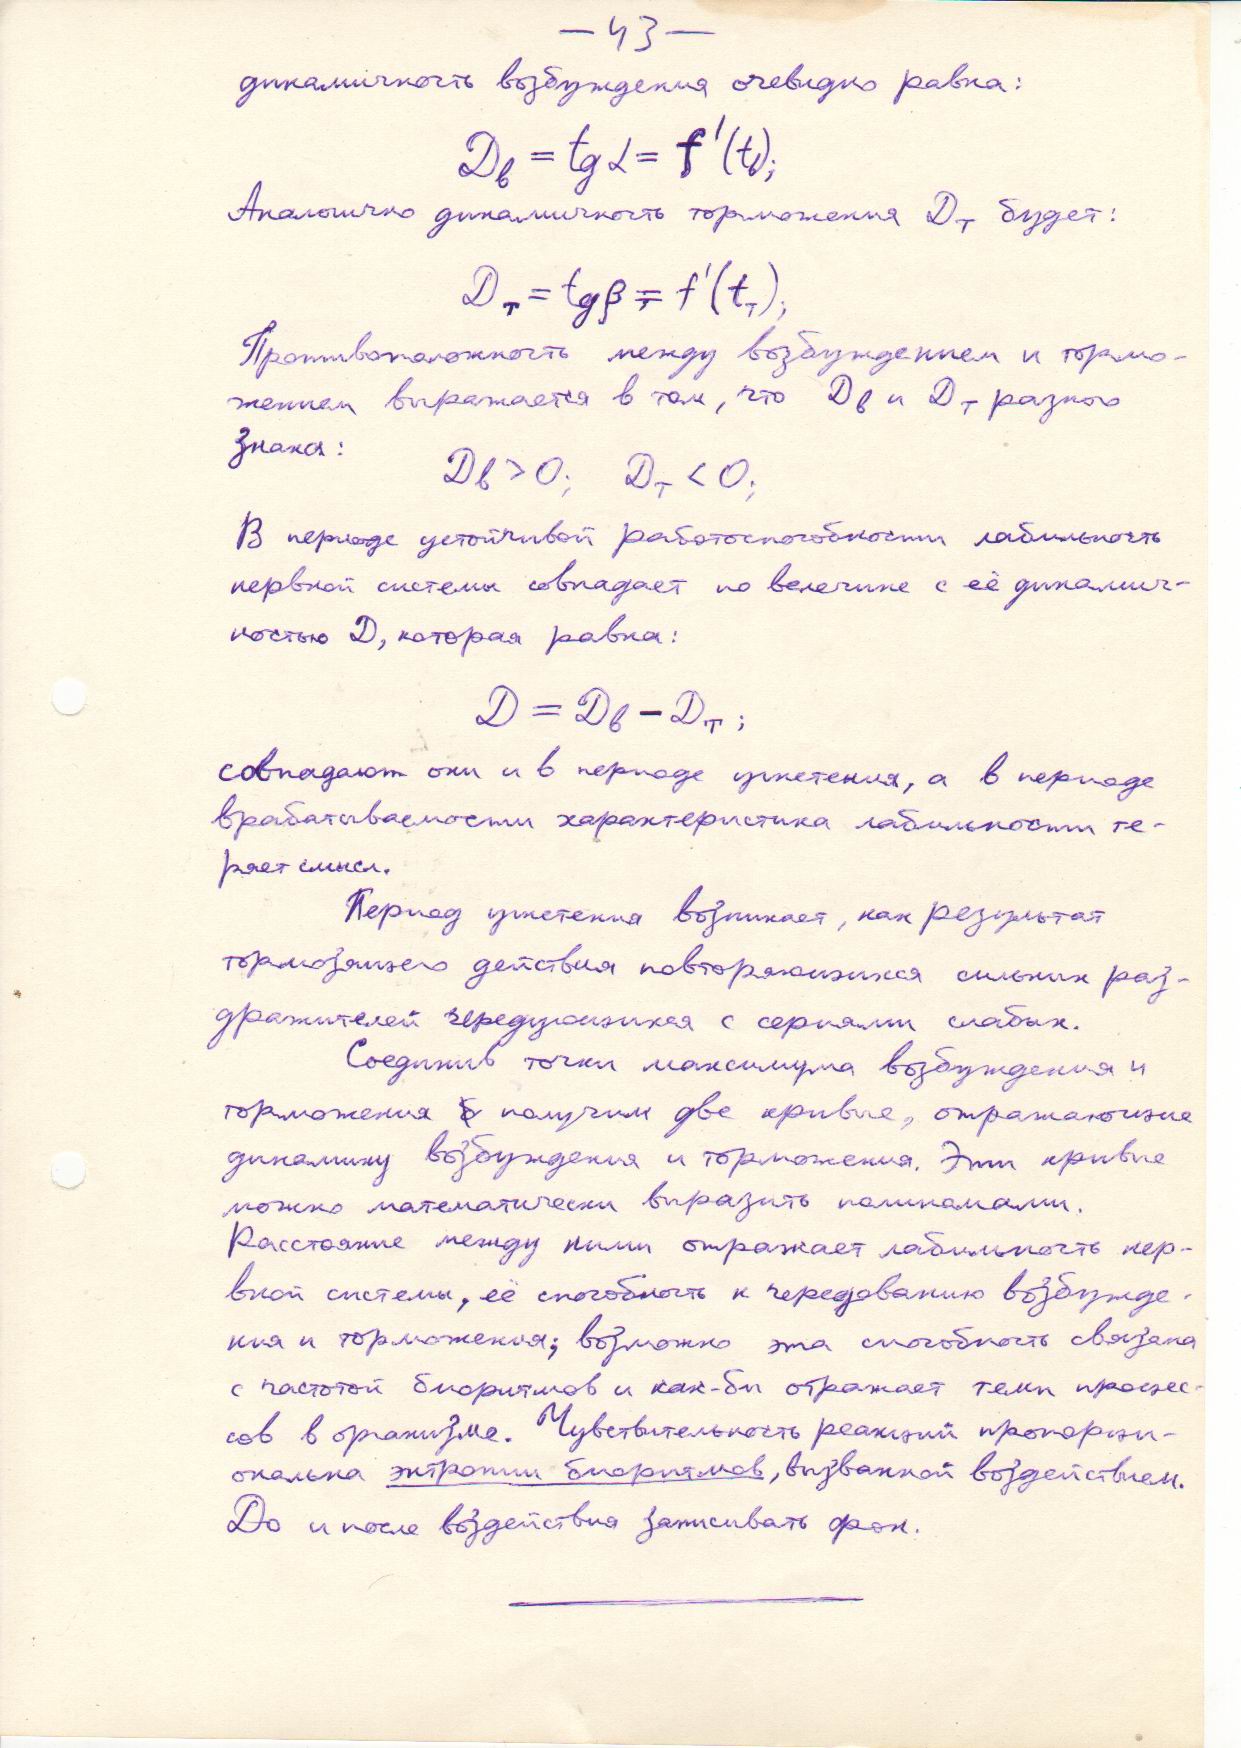 — 43 —
динамичность возбуждения очевидно равна:
Дв = tg α = f'(tв);
Аналогично динамичность торможения Дт будет:
Дт = tg β = f'(tт);
Противоположность между возбуждением и тормо-
жением выражается в том, что Дв и Дт разного
знака:
Дв > 0; Дт < 0;
В периоде устойчивой работоспособности лабильность
нервной системы совпадает по величине с её динамич-
ностью Д, которая равна:
Д = Дв – Дт;
совпадают они и в периоде угнетения, а в периоде
врабатываемости характеристика лабильности те-
ряет смысл.
Период угнетения возникает, как результат
тормозящего действия повторяющихся сильных раз-
дражителей чередующихся с сериями слабых.
Соединив точки максимума возбуждения и
торможения получим две кривые, отражающие
динамику возбуждения и торможения. Эти кривые
можно математически выразить полиномами.
Расстояние между ними отражает лабильность нер-
вной системы, её способность к чередованию возбужде-
ния и торможения; возможно эта способность связана
с частотой биоритмов и как-бы отражает темп процес-
сов в организме. Чувствительность реакций пропорци-
ональна энтропии биоритмов, вызванной воздействием.
До и после воздействия записывать фон.